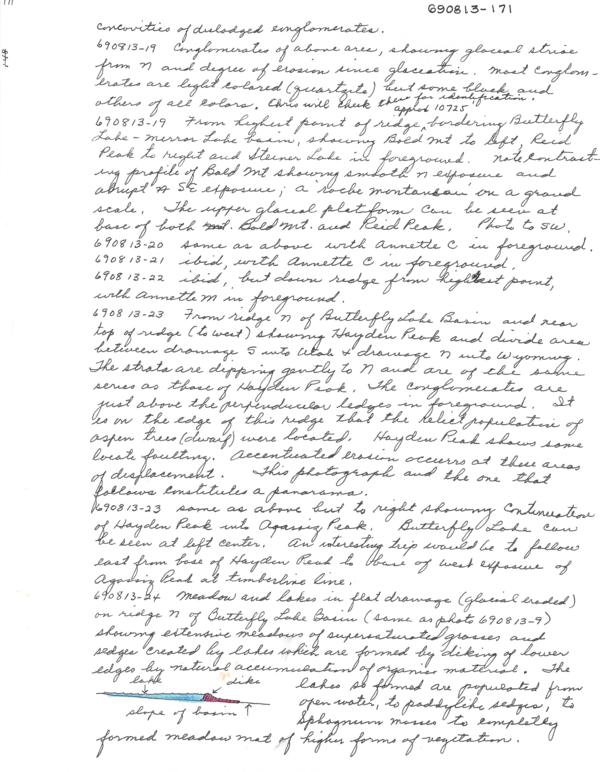 690813-171
concavities of dislodged conglomerates.
690813-19 Conglomerates of above area, showing glacial striae
from N and degree of erosion since glaciation. most conglom-
erates are light colored (quartzite) but some black and
others of all colors. Chris will check them for identification.
approx 10725
690813-19 From highest point of ridge, bordering Butterfly
Lake - mirror Lake basin, showing Bald Mt to left, Reid
Peak to right and Steiner Lake in foreground. note contrast-
ing profile of Bald Mt showing smooth N exposure and
abrupt SE exposure; a roche montaneau on a grand
scale. The upper glacial platform can be seen at
base of both mt. Bald Mt. and Reid Peak. Photo to SW.
690813-20 same as above with Annette C in foreground.
690813-21 ibid, with Annette C in foreground.
690813-22 ibid, but down ridge from highest point,
with Annette M in foreground.
690813-23 From ridge N of Butterfly Lake Basin and near
top of ridge (to west) showing Hayden Peak and divide area
between drainage S into Utah & drainage N into Wyoming.
The strata are dipping gently to N and are of the same
series as those of Hayden Peak. The conglomerates are
just above the perpendicular ledges in foreground. It
is on the edge of this ridge that the relict population of
aspen trees (dwarf) were located. Hayden Peak shows some
locate faulting. Accentuated erosion occurrs at these areas
of displacement. This photograph and the one that
follows constitutes a panorama.
690813-23 same as above but to right showing continuation
of Hayden Peak into Agassiz Peak. Butterfly Lake can
be seen at left center. An interesting trip would be to follow
east from base of Hayden Peak to base of west exposure of
Agassiz Peak at timberline line.
690813-24 meadow and lakes in flat drainage (glacial eroded)
on ridge N of Butterfly Lake Basin (same as photo 690813-9)
showing extensive meadows of supersaturated grasses and
sedges created by lakes which are formed by diking of lower
edges by natural accumulation of organic material. The
lake dike
lakes so formed are populated from
open water, to paddylike sedges, to
slope of basin
Sphagnum mosses to completely
formed meadow mat of higher forms of vegetation.